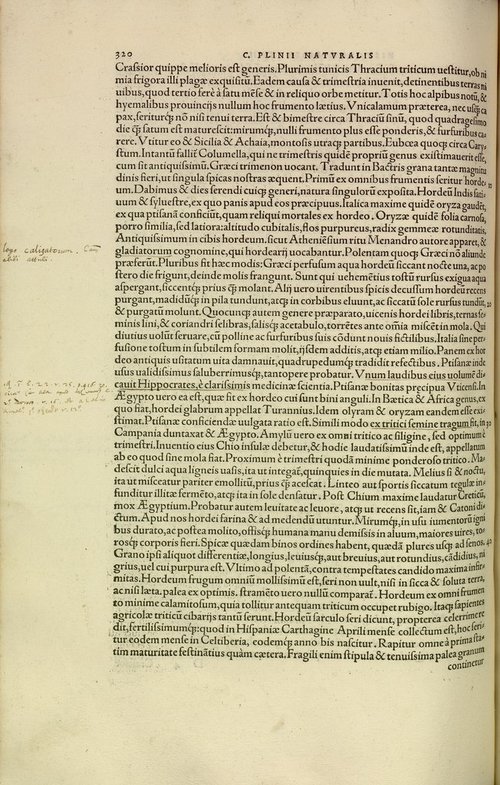 320 C. PLINII NATVRALIS
Crassior quippe melioris est generis. Plurimis tunicis Thracium triticum uestitur, ob ni
mia frigora illi plagæ exquisitū. Eadem causa & trimestria inuenit, detinentibus terras ni
uibus, quod tertio ferè à satu mēse & in reliquo orbe metitur. Totis hoc alpibus notū, &
hyemalibus prouincijs nullum hoc frumento lætius. Vnicalamum præterea, nec usq̃ ca
pax, seriturq́ꝫ nō nisi tenui terra. Est & bimestre circa Thraciū sinū, quod quadragesimo
die q̃ satum est maturescit: mirumq́ꝫ, nulli frumento plus esse ponderis, & furfuribus ca
rere. Vtitur eo & Sicilia & Achaia, montosis utraq́ꝫ partibus. Eubœa quoq́ꝫ circa Cary
stum. Intantū fallit Columella, qui ne trimestris quidē propriū genus existimauerit esse,
cum sit antiquissimū. Græci trimenon uocant. Tradunt in Bactris grana tantæ magnitu
dinis fieri, ut singula spicas nostras æquent. Primū ex omnibus frumentis seritur horde
um. Dabimus & dies serendi cuiq́ꝫ generi, natura singulorū exposita. Hordeū Indis sati
uum & syluestre, ex quo panis apud eos præcipuus. Italica maxime quidē oryza gaudēt,
ex qua ptisanā conficiūt, quam reliqui mortales ex hordeo. Oryzæ quidē folia carnosa,
porro similia, sed latiora: altitudo cubitalis, flos purpureus, radix gemmeæ rotunditatis.
Antiquissimum in cibis hordeum. sicut Atheniēsium ritu Menandro autore apparet, &
gladiatorum cognomine, qui hordearij uocabantur. Polentam quoq́ꝫ Græci nō aliunde
præferūt. Pluribus fit hæc modis: Græci perfusum aqua hordeū siccant nocte una, ac po
stero die frigunt, deinde molis frangunt. Sunt qui uehemētius tostū rursus exigua aqua
aspergant, siccentq́ꝫ prius q̃ molant. Alij uero uirentibus spicis decussum hordeū recens
purgant, madidūq́ꝫ in pila tundunt, atq́ꝫ in corbibus eluunt, ac siccatū sole rursus tundūt,
& purgatū molunt. Quocunq́ꝫ autem genere præparato, uicenis hordei libris, ternas se
minis lini, & coriandri selibras, salisq́ꝫ acetabulo, torrētes ante omia miscēt in mola. Qui
diutius uolūt seruare, cū polline ac furfuribus suis cōdunt nouis fictilibus. Italia sine per
fusione tostum in subtilem formam molit, ijsdem additis, atq́ꝫ etiam milio. Panem ex hor
deo antiquis usitatum uita damnauit, quadrupedumq́ꝫ tradidit refectibus. Ptisanæ inde
usus ualidissimus saluberrimusq́ꝫ, tantopere probatur. Vnum laudibus eius uolumē di
cauit Hippocrates, è clarissimis medicinæ scientia. Ptisanæ bonitas præcipua Vticensi. In
Ægypto uero ea est, quæ fit ex hordeo cui sunt bini anguli. In Bætica & Africa genus, ex
quo fiat, hordei glabrum appellat Turannius. Idem olyram & oryzam eandem esse exi
stimat. Ptisanæ conficiendæ uulgata ratio est. Simili modo ex tritici semine tragum fit, in
Campania duntaxat & Ægypto. Amylū uero ex omni tritico ac siligine, sed optimum è
trimestri. Inuentio eius Chio insulæ debetur, & hodie laudatissimū inde est, appellatum
ab eo quod sine mola fiat. Proximum è trimestri quodā minime ponderoso tritico. Ma
descit dulci aqua ligneis uasis, ita ut integat̃, quinquies in die mutata. Melius si & noctu,
ita ut misceatur pariter emollitū, prius q̃ acescat. Linteo aut sportis siccatum tegulæ in
funditur illitæ fermēto, atq́ꝫ ita in sole densatur. Post Chium maxime laudatur Creticū,
mox Ægyptium. Probatur autem leuitate ac leuore, atq́ꝫ ut recens sit, iam & Catoni di
ctum. Apud nos hordei farina & ad medendū utuntur. Mirumq́ꝫ, in usu iumentorū igni
bus durato, ac postea molito, offisq́ꝫ humana manu demissis in aluum, maiores uires, to
rosq́ꝫ corporis fieri. Spicæ quædam binos ordines habent, quædā plures usq́ꝫ ad senos.
Grano ipsi aliquot differentiæ, longius, leuiusq́ꝫ, aut breuius, aut rotundius, cādidius, ni
grius, uel cui purpura est. Vltimo ad polentā, contra tempestates candido maxima infir
mitas. Hordeum frugum omniū mollissimū est, seri non uult, nisi in sicca & soluta terra,
ac nisi læta. palea ex optimis. stramēto uero nullū comparat̃. Hordeum ex omni frumen
to minime calamitosum, quia tollitur antequam triticum occupet rubigo. Itaq́ꝫ sapientes
agricolæ triticū cibarijs tantū serunt. Hordeū sarculo seri dicunt, propterea celerrime red
dit, fertilissimumq́ꝫ: quod in Hispaniæ Carthagine Aprili mense collectum est, hoc seri
tur eodem mense in Celtiberia, eodemq́ꝫ anno bis nascitur. Rapitur omne à prima sta
tim maturitate festinātius quàm cætera. Fragili enim stipula & tenuissima palea granum
continetur